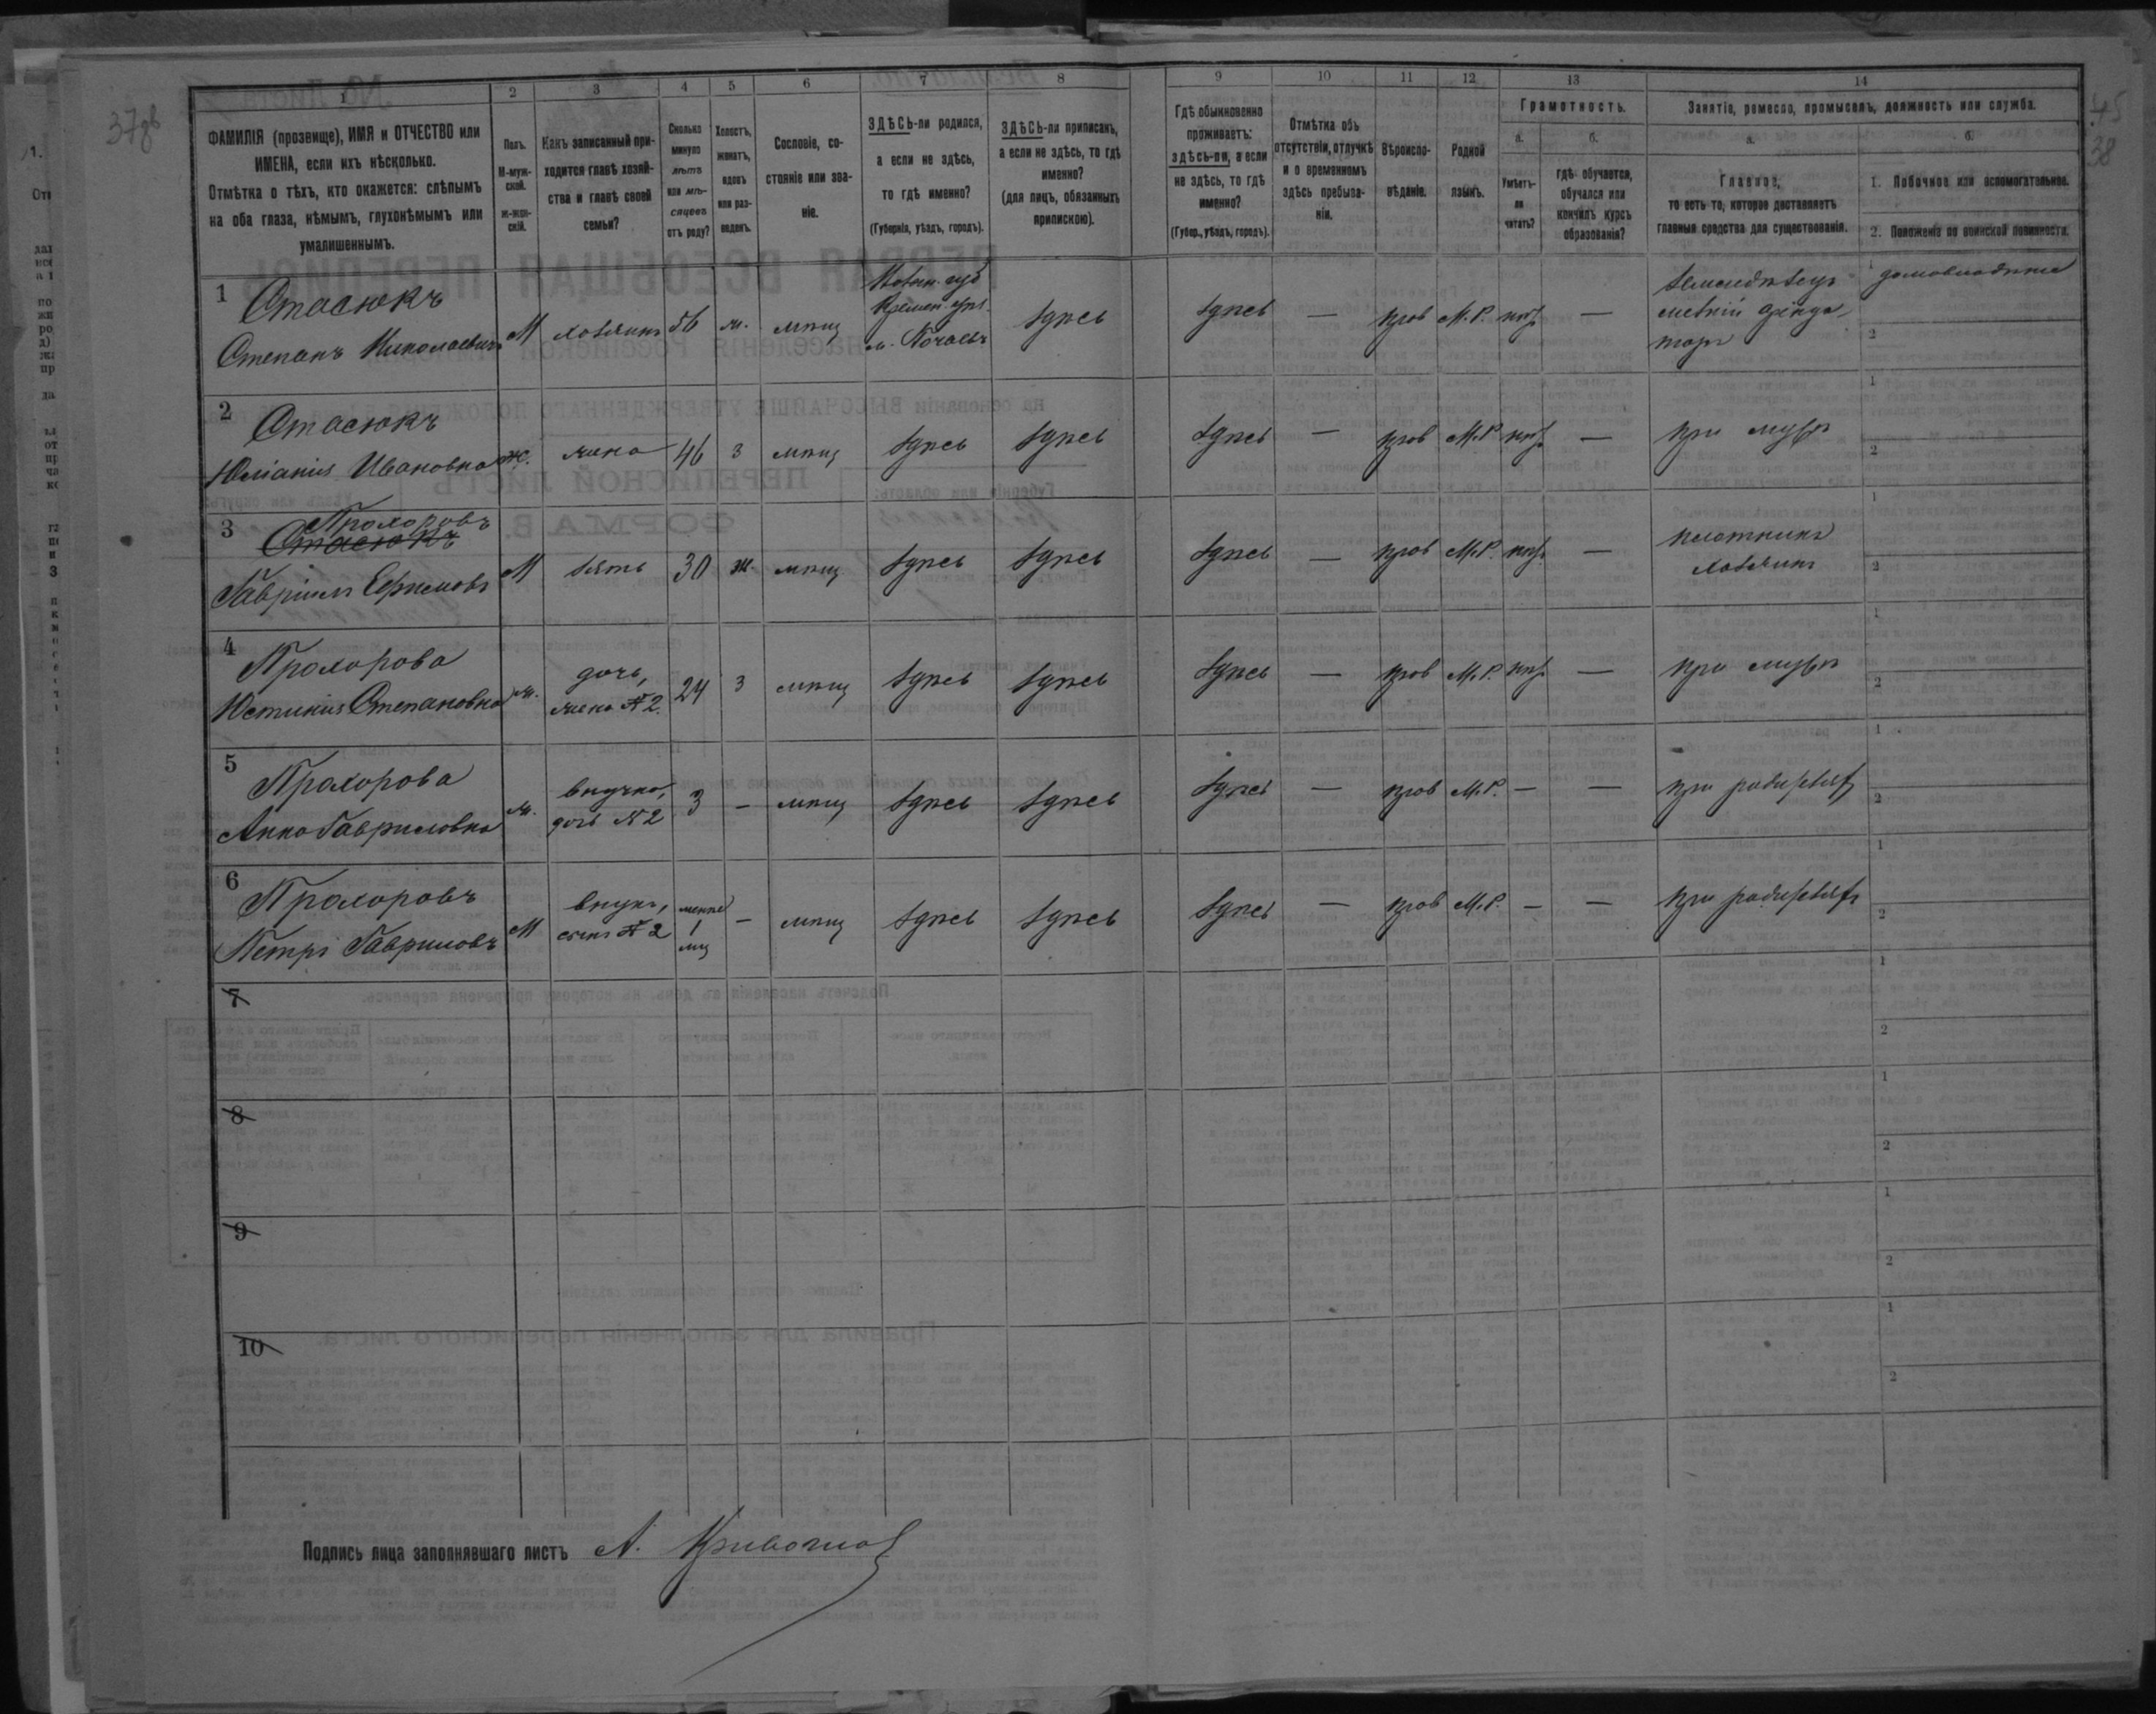 37об
45
38
1 2 3 4 5 6 7 8 9 10 11 12 13 14
ФАМИЛІЯ (прозвище), ИМЯ и ОТЧЕСТВО или
ИМЕНА, если ихъ нѣсколько.
Отмѣтка о тѣхъ, кто окажется: слѣпымъ
на оба глаза, нѣмымъ, глухонѣмымъ или
умалишеннымъ.
Полъ.
М-муж-
ской.
ж-жен-
скій.
Какъ записанный при-
ходится главѣ хозяй-
ства и главѣ своей
семьи?
Сколько
минуло
лѣтъ
или мѣ-
сяцевъ
отъ роду?
Холостъ,
женатъ,
вдовъ
или раз-
веденъ.
Сословіе, со-
стояніе или зва-
ніе.
ЗДѢСЬ-ли родился,
а если не здѣсь,
то гдѣ именно?
(Губернія, уѣздъ, городъ).
ЗДѢСЬ-ли приписанъ,
а если не здѣсь, то гдѣ
именно?
(для лицъ, обязанныхъ
припискою).
Гдѣ обыкновенно
проживаетъ:
здѣсь-ли, а если
не здѣсь, то гдѣ
именно?
(Губер., уѣздъ, городъ).
Отмѣтка объ
отсутствіи, отлучкѣ
и о временномъ
здѣсь пребыва-
ніи.
Вѣроиспо-
вѣданіе.
Родной
языкъ.
Грамотность.
а.
Умѣетъ-
ли
читать?
б.
гдѣ обучается,
обучался или
кончилъ курсъ
образованія?
Занятіе, ремесло, промыселъ, должность или служба.
а.
Главное,
то есть то, которое доставляетъ
главныя средства для существованія.
б.
1. Побочное или вспомогательное.
2. Положеніе по воинской повинности.
1 Стасюкъ
Степанъ Николаевичъ
М хозяинъ 56 ж. мпщ
Волын. губ
Кремен. уѣз.
м. Почаевъ
здѣсь здѣсь — прав М.Р. нѣт —
земледѣлецъ
мелкій аренда-
торъ
1 домовладѣніе
2
2 Стасюкъ
Юліанія Ивановна
ж. жена 46 з мпщ здѣсь здѣсь здѣсь — прав М.Р. нѣт — при мужѣ
1
2
3 Прохоровъ
Стасюкъ
Гавріилъ Ефимовъ
М зять 30 ж мпщ здѣсь здѣсь здѣсь — прав М.Р. нѣт —
плотникъ
хозяинъ
1
2
4 Прохорова
Юстинія Степановна
ж.
дочь,
жена № 2.
24 з мпщ здѣсь здѣсь здѣсь — прав М.Р. нѣт — при мужѣ
1
2
5 Прохорова
Анна Гавриловна
ж.
внучка,
дочь № 2
3 — мпщ здѣсь здѣсь здѣсь — прав М.Р. — — при родителях
1
2
6 Прохоровъ
Петръ Гавриловъ
М
внукъ,
сынъ № 2
менѣе
1
мц
— мпщ здѣсь здѣсь здѣсь — прав М.Р. — — при родителяхъ
1
2
7
1
2
8
1
2
9
1
2
10
1
2
Подпись лица заполнявшаго листъ А.